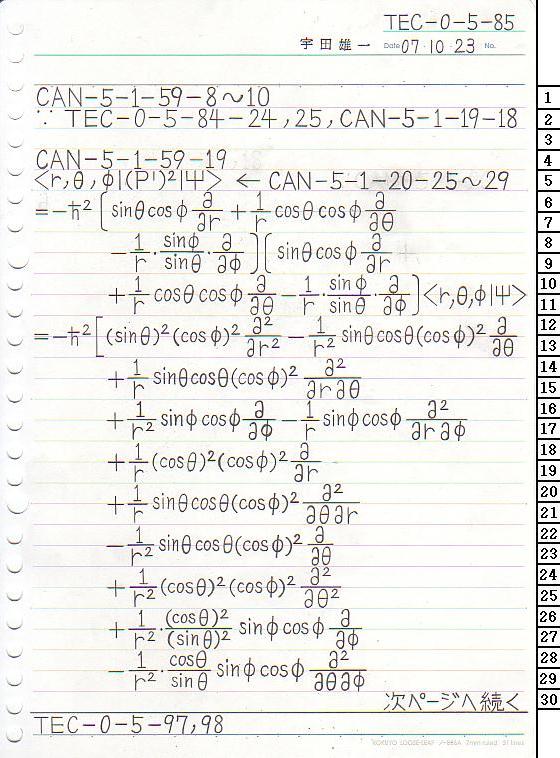 TEC-0-5-85
宇田雄一 Date 07・10・23 No.
CAN-5-1-59-8～10
∵ TEC-0-5-84-24,25, CAN-5-1-19-18
CAN-5-1-59-19
<r,θ,φ|(P¹)²|Ψ> ← CAN-5-1-20-25～29
=-ħ²[sinθcosφ ∂/∂r + 1/r cosθcosφ ∂/∂θ
- 1/r・sinφ/sinθ・∂/∂φ][sinθcosφ ∂/∂r
+ 1/r cosθcosφ ∂/∂θ - 1/r・sinφ/sinθ・∂/∂φ]<r,θ,φ|Ψ>
=-ħ²[(sinθ)²(cosφ)² ∂²/∂r² - 1/r² sinθcosθ(cosφ)² ∂/∂θ
+ 1/r sinθcosθ(cosφ)² ∂²/∂r∂θ
+ 1/r² sinφcosφ ∂/∂φ - 1/r sinφcosφ ∂²/∂r∂φ
+ 1/r (cosθ)²(cosφ)² ∂/∂r
+ 1/r sinθcosθ(cosφ)² ∂²/∂θ∂r
- 1/r² sinθcosθ(cosφ)² ∂/∂θ
+ 1/r² (cosθ)²(cosφ)² ∂²/∂θ²
+ 1/r²・(cosθ)²/(sinθ)² sinφcosφ ∂/∂φ
- 1/r²・cosθ/sinθ sinφcosφ ∂²/∂θ∂φ
次ページへ続く
TEC-0-5-97,98
KOKUYO LOOSE-LEAF ノ-886A 7mm ruled 31 lines
1
2
3
4
5
6
7
8
9
10
11
12
13
14
15
16
17
18
19
20
21
22
23
24
25
26
27
28
29
30